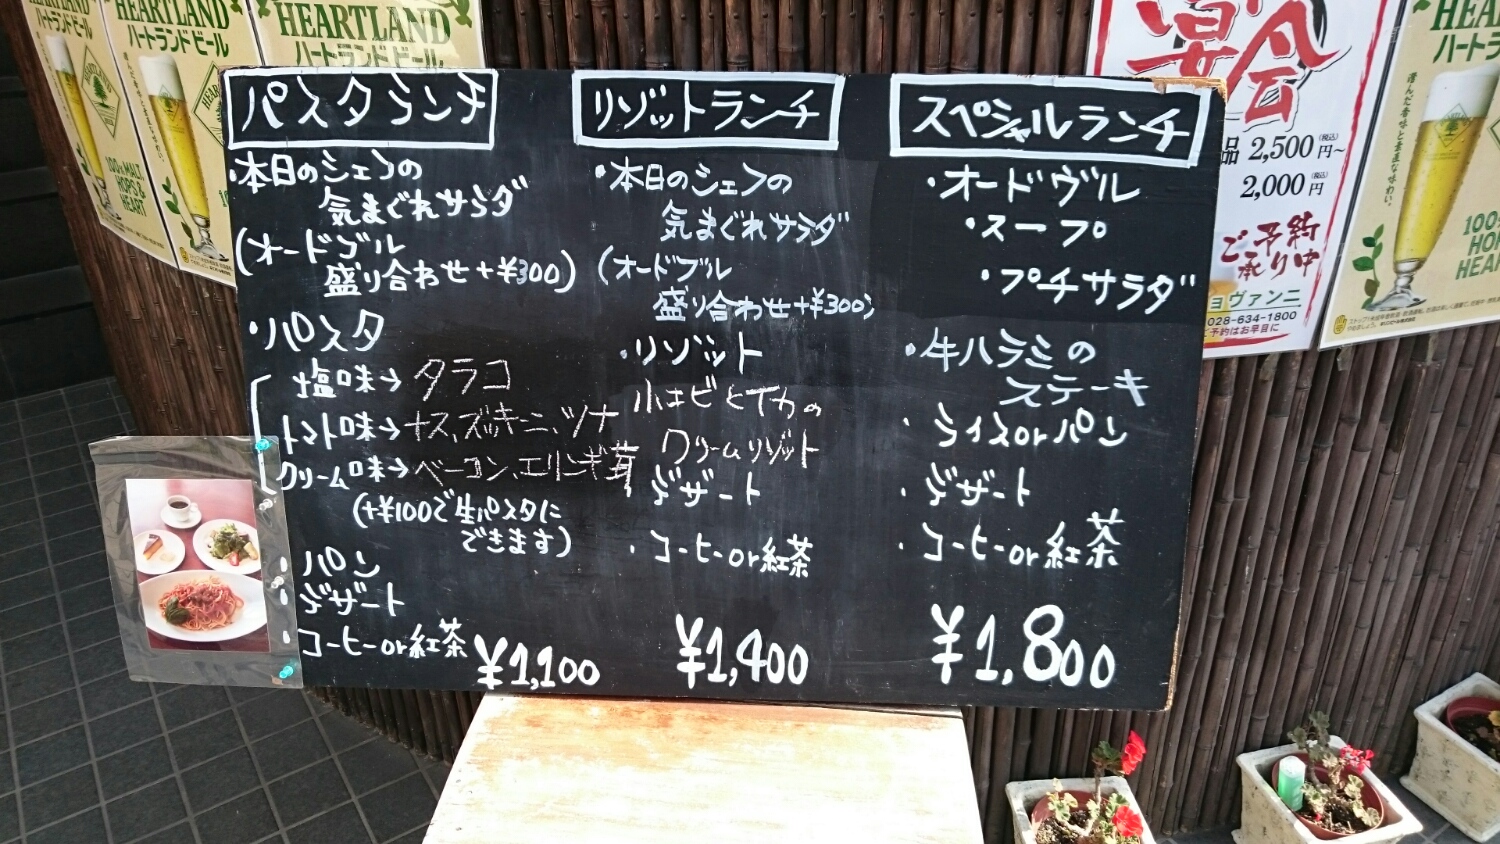 HEARTLAND
ハートランドビール
HEARTLAND
ハートランドビール
100% MALT
HOPS &
HEART
パスタランチ
・本日のシェフの
気まぐれサラダ
(オードブル
盛り合わせ+¥300)
・パスタ
塩味→タラコ
トマト味→ナス、ズッキーニ、ツナ
クリーム味→ベーコン、エリンギ茸
(+¥100で生パスタに
できます)
パン
デザート
コーヒーor紅茶
¥1,100
リゾットランチ
・本日のシェフの
気まぐれサラダ
(オードブル
盛り合わせ+¥300)
・リゾット
小エビとイカの
クリームリゾット
・デザート
・コーヒーor紅茶
¥1,400
スペシャルランチ
・オードヴル
・スープ
・プチサラダ
・牛ハラミの
ステーキ
・ライスorパン
・デザート
・コーヒーor紅茶
¥1,800
宴会
品 2,500円~
(税込)
2,000円
(税込)
ご予約
承り中
ョヴァンニ
028-634-1800
ご予約はお早目に